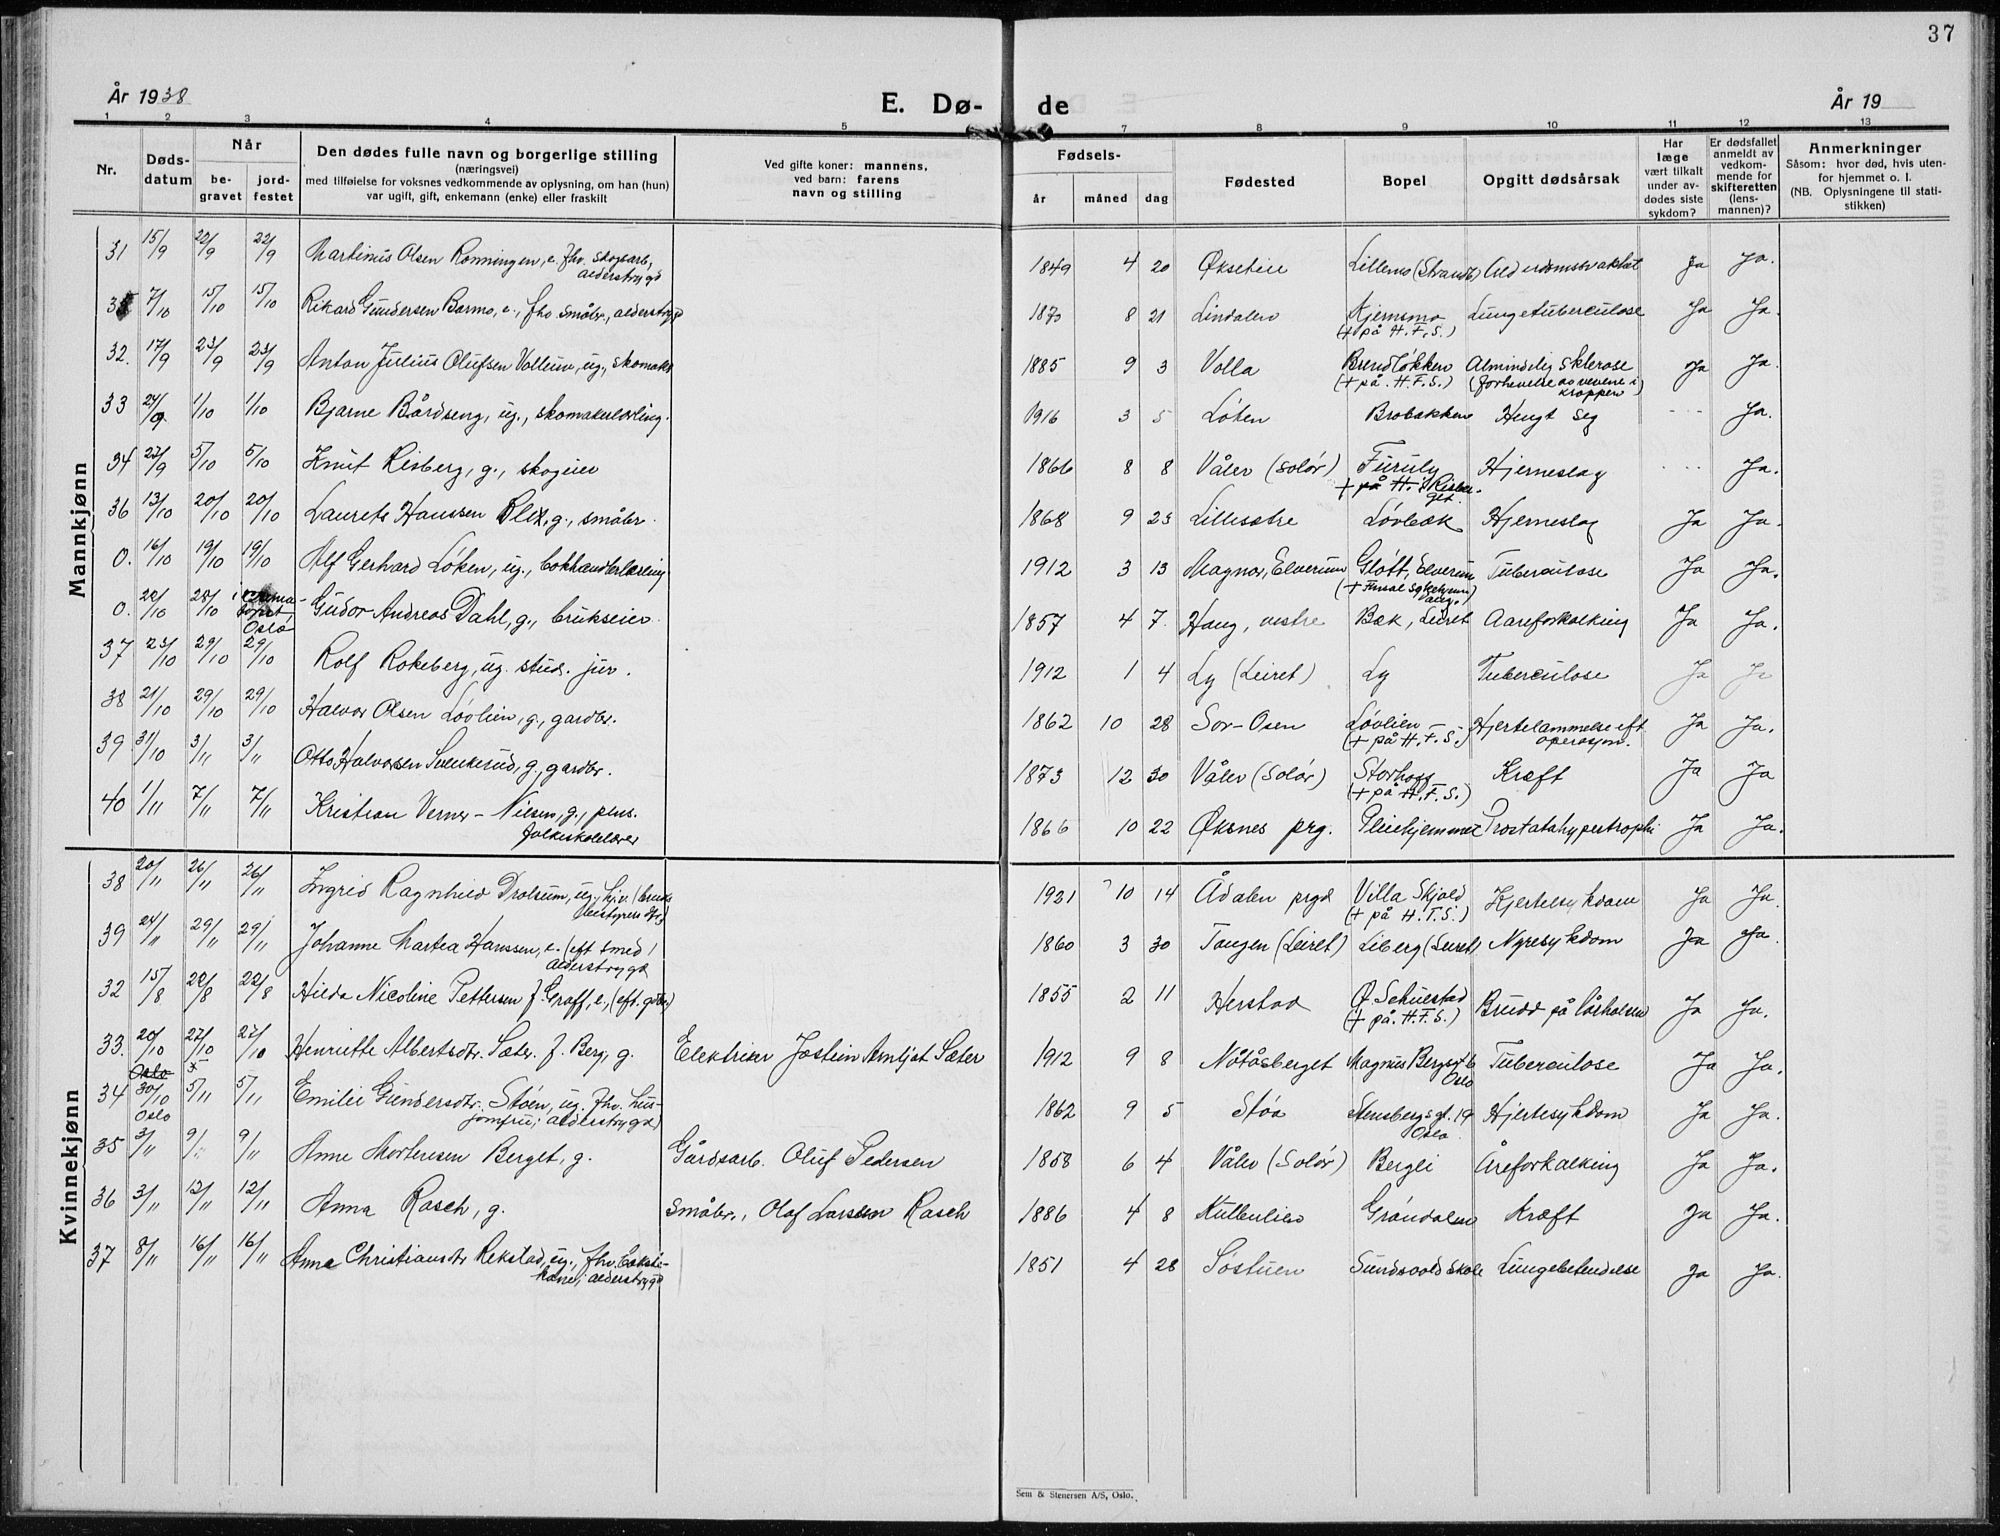 37
År 1938
E. Dø- de
År 19
1 2 3 4 5 7 8 9 10 11 12 13
Nr.
Døds-
datum
Når
be-
gravet
jord-
festet
Den dødes fulle navn og borgerlige stilling
(næringsvei)
med tilføielse for voksnes vedkommende av oplysning, om han (hun)
var ugift, gift, enkemann (enke) eller fraskilt
Ved gifte koner: mannens,
ved barn: farens
navn og stilling
Fødsels-
år måned dag
Fødested
Bopel
Opgitt dødsårsak
Har
læge
vært tilkalt
under av-
dødes siste
sykdom?
Er dødsfallet
anmeldt av
vedkom-
mende for
skifteretten
(lens-
mannen)?
Anmerkninger
Såsom: hvor død, hvis uten-
for hjemmet o. l.
(NB. Oplysningene til stati-
stikken)
Mannkjønn
31 15/9 22/9 22/9 Martinus Olsen Rønningen, e. fhv. skogsarb., 1849 4 20 Øksetin Lillemo (Strandb) Alderdomssvakhet Ja Ja.
alderstrygd
35 7/10 15/10 15/10 Rikard Gundersen Barmo, e., fhv. småbr., alderstrygd 1870 8 21 Lindalen Kjernsmo Lungetuberculose Ja Ja.
(+ på H.F.S.)
32. 17/9 23/9 23/9 Anton Julius Olufsen Vollum, ug., skomaker 1885 9 3 Volla Brendløkken Almindelig sklerose Ja Ja.
(+ på. H.F.S.) (forhevelse av vevene i
kroppen)
33 24/9 1/10 1/10 Bjarne Bårdseng, ug., skomakerlærling. 1916 3 5 Løten Brobakken Hengt seg --- Ja.
34 27/9 5/10 5/10 Knut Risberg, g., skogeier 1866 8 8 Våler (Solør) Furuly Hjerneslag ... Ja.
+ på H. Risber-
get.
36 13/10 20/10 20/10 Laurits Hanssen Blix, g., småbr. 1868 9 23 Lillesætre Løvbæk Hjerneslag Ja Ja.
0. 16/10 19/10 19/10 Alf Gerhard Løken, ug., bokhandlerlærling 1912 3 13 Magnor, Elverum Gløtt, Elverum Tuberculose Ja Ja.
(+
0. 22/10 28/10 Gudor Andreas Dahl, g., brukseier. 1857 4 7. Haug, vestre Bæk, Leiret Aareforkalkning Ja Ja.
Oslo
37 23/10 29/10 29/10 Rolf Rokeberg, ug. stud. jur. 1912 1 4 Ly (Leiret) Ly Tuberculose Ja Ja
38 21/10 29/10 29/10 Halvor Olsen Løvlien, g., gardbr. 1862 10 28 Sør-Osen Løvlien Hjertelammelse eft Ja Ja.
(+ på H.F.S.) operasjon.
39 31/10 3/11 3/11 Otto Halvorsen Svenkerud, g., gardbr. 1873 12 30 Våler (Solør) Storhagg Kræft Ja Ja
(+ på H.F.S.)
40 1/11 7/11 7/11 Kristian Verner-Nilsen, g., pens. 1866 10 22 Øksnes prg. Pleiehjemmet Prostatahypertrophi Ja Ja.
folkeskolelærer
Kvinnekjønn
38 20/11 26/11 26/11 Ingrid Ragnhild Drolsum, ug., hj.v. (bruks 1921 10 14 Ådalen prgd Villa Skjold Hjertesykdom Ja Ja.
bestyrers dtr) (+ på H.F.S.)
39 24/11 29/11 29/11 Johanne Martea Hanssen, e. (eft smed) 1860 3 30 Tangen (Leiret) Liberg (Leiret) Nyresykdom Ja Ja.
alderstrygd
32 15/8 22/8 22/8 Hilda Nicoline Pettersen f. Graff, e., (eft. gdbr) 1855 2 11 Herstad Ø. Schulstad Brudd på lårhalsen Ja Ja.
(+ på. H.F.S.)
33. 20/10 27/10 27/10 Henriette Albertsdtr. Sæter f. Berg, g. Elektriker Jostein Arnljot Sæter 1912 9 8 Nøtåsberget Magnus Bergsgt 6 Tuberculose Ja Ja.
Oslo Oslo
34 30/10 5/11 5/11 Emilie Gundersdtr. Støen, ug. fhv. hus- 1862 9 5 Støa Stensbergsgt. 19 Hjertesykdom Ja Ja.
Oslo jomfru; alderstrygd) Oslo.
35 3/11 9/11 9/11 Anne Mortensen Berget, g. Gårdsarb. Oluf Pedersen 1858 6 4 Våler (Solør) Bergli Åreforkalkning Ja Ja.
36 3/11 12/11 12/11 Anna Rasch, g. Småbr., Olaf Larsen Rasch 1886 4 8 Kulbulien Grøndalen Kræft Ja Ja.
37 8/11 16/11 16/11 Anne Christiansdtr Rekstad, ug., fhv. bakste- 1851 4 28 Søstuen Sundsvold skole Lungebetendelse Ja Ja.
kone; alderstrygd
Sem & Stenersen A/S, Oslo.